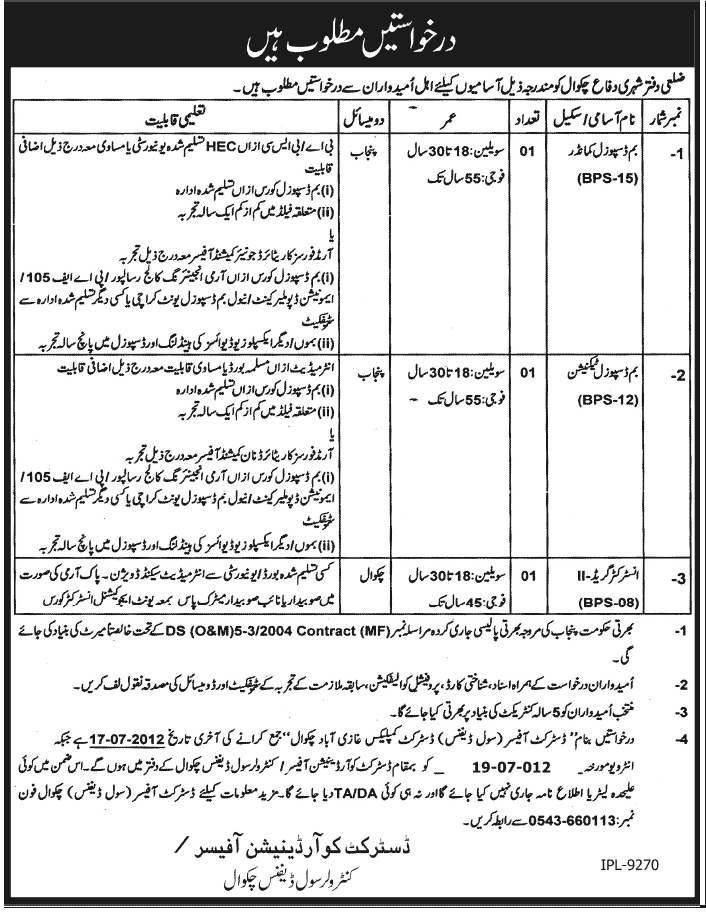 درخواستیں مطلوب ہیں
ضلعی دفتر شہری دفاع چکوال کو مندرجہ ذیل آسامیوں کیلئے اہل اُمیدواران سے درخواستیں مطلوب ہیں۔
نمبر شمار نام آسامی/سکیل تعداد عمر دومیسائل تعلیمی قابلیت
1- بم ڈسپوزل کمانڈر (BPS-15) 01 سویلین: 18 تا 30 سال فوجی: 55 سال تک پنجاب
بی اے/بی ایس سی ازاں HEC تسلیم شدہ یونیورسٹی یا مساوی معہ درج ذیل اضافی
قابلیت
(i) بم ڈسپوزل کورس ازاں تسلیم شدہ ادارہ
(ii) متعلقہ فیلڈ میں کم از کم ایک سالہ تجربہ
یا
آرمڈ فورسز کا ریٹائرڈ جونیئر کمیشنڈ آفیسر معہ درج ذیل تجربہ
(i) بم ڈسپوزل کورس ازاں آرمی انجینئرنگ کالج رسالپور/پی اے ایف 105/
ایمونیشن ڈپو ملیر کینٹ/نیول بم ڈسپوزل یونٹ کراچی یا کسی دیگر تسلیم شدہ ادارہ سے
سرٹیفکیٹ
(ii) بموں/دیگر ایکسپلوزیو ڈیوائسز کی ہینڈلنگ اور ڈسپوزل میں پانچ سالہ تجربہ
2- بم ڈسپوزل ٹیکنیشن (BPS-12) 01 سویلین: 18 تا 30 سال فوجی: 55 سال تک پنجاب
انٹرمیڈیٹ ازاں مسلمہ بورڈ یا مساوی قابلیت معہ درج ذیل اضافی قابلیت
(i) بم ڈسپوزل کورس ازاں تسلیم شدہ ادارہ
(ii) متعلقہ فیلڈ میں کم از کم ایک سالہ تجربہ
یا
آرمڈ فورسز کا ریٹائرڈ نان کمیشنڈ آفیسر معہ درج ذیل تجربہ
(i) بم ڈسپوزل کورس ازاں آرمی انجینئرنگ کالج رسالپور/پی اے ایف 105/
ایمونیشن ڈپو ملیر کینٹ/نیول بم ڈسپوزل یونٹ کراچی یا کسی دیگر تسلیم شدہ ادارہ سے
سرٹیفکیٹ
(ii) بموں/دیگر ایکسپلوزیو ڈیوائسز کی ہینڈلنگ اور ڈسپوزل میں پانچ سالہ تجربہ
3- انسٹرکٹر گریڈ-II (BPS-08) 01 سویلین: 18 تا 30 سال فوجی: 45 سال تک چکوال
کسی تسلیم شدہ بورڈ/یونیورسٹی سے انٹرمیڈیٹ سیکنڈ ڈویژن۔ پاک آرمی کی صورت
میں صوبیدار یا نائب صوبیدار میٹرک پاس بمعہ یونٹ ایجوکیشنل انسٹرکٹر کورس
1- بھرتی حکومت پنجاب کی مروجہ بھرتی پالیسی جاری کردہ مراسلہ نمبر DS (O&M)5-3/2004 Contract (MF) کے تحت خالصتاً میرٹ کی بنیاد کی جائے
گی۔
2- اُمیدواران درخواست کے ہمراہ اسناد، شناختی کارڈ، پروفیشنل کوالیفکیشن، سابقہ ملازمت کے تجربہ کے سرٹیفکیٹ اور ڈومیسائل کی مصدقہ نقول لف کریں۔
3- منتخب اُمیدواران کو 5 سالہ کنٹریکٹ کی بنیاد پر بھرتی کیا جائے گا۔
4- درخواستیں بنام ”ڈسٹرکٹ آفیسر (سول ڈیفنس) ڈسٹرکٹ کمپلیکس غازی آباد چکوال“ جمع کرانے کی آخری تاریخ 17-07-2012 ہے جبکہ
انٹرویو مورخہ 19-07-012 کو بمقام ڈسٹرکٹ کوآرڈینیشن آفیسر/کنٹرولر سول ڈیفنس چکوال کے دفتر میں ہوں گے۔ اس ضمن میں کوئی
علیحدہ لیٹر یا اطلاع نامہ جاری نہیں کیا جائے گا اور نہ ہی کوئی TA/DA دیا جائے گا۔ مزید معلومات کیلئے ڈسٹرکٹ آفیسر (سول ڈیفنس) چکوال فون
نمبر: 0543-660113 سے رابطہ کریں۔
ڈسٹرکٹ کوآرڈینیشن آفیسر /
کنٹرولر سول ڈیفنس چکوال
IPL-9270